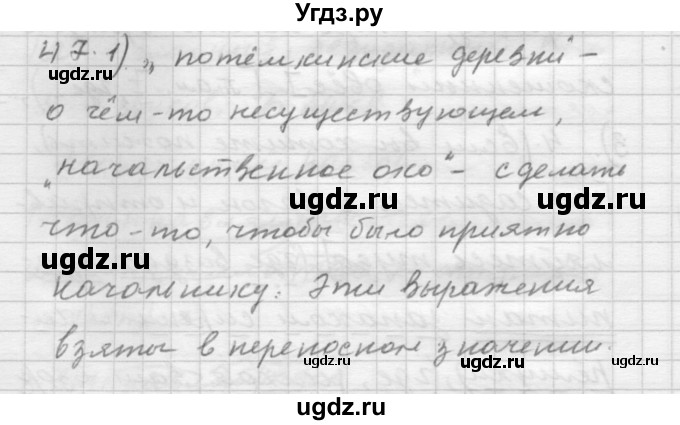 Угдз.ру
47. 1) „потёмкинские деревни" –
о чём-то несуществующем,
„начальственное око" – сделать
что-то, чтобы было приятно
начальнику. Эти выражения
взяты в переносном значении.
ugdz.ru
ugdz.ru
ugdz.ru
ugdz.ru
ugdz.ru
ugdz.ru
ugdz.ru
ugdz.ru
ugdz.ru
ugdz.ru